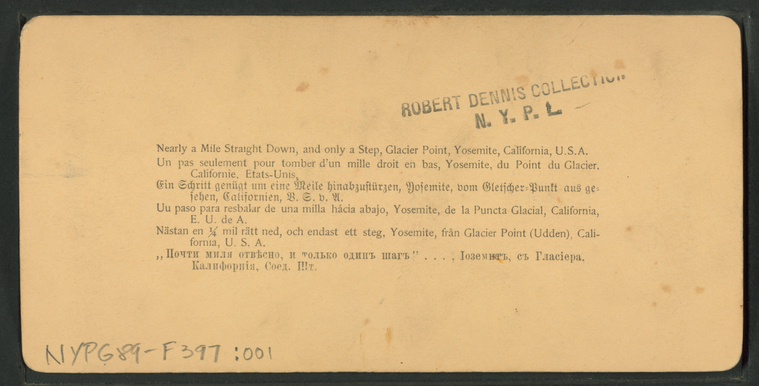 ROBERT DENNIS COLLECTION
N. Y. P. L.
Nearly a Mile Straight Down, and only a Step, Glacier Point, Yosemite, California, U.S.A.
Un pas seulement pour tomber d'un mille droit en bas, Yosemite, du Point du Glacier.
Californie, Etats-Unis,
Ein Schritt genügt um eine Meile hinabzustürzen, Yosemite, vom Gletscher-Punkt aus ge-
sehen, Californien, V. S. v. A.
Uu paso para resbalar de una milla hàcia abajo, Yosemite, de la Puncta Glacial, California,
E. U. de A.
Nästan en ¼ mil rätt ned, och endast ett steg, Yosemite, från Glacier Point (Udden), Cali-
fornia, U. S. A.
„Почти миля отвѣсно, и только одинъ шагъ" . . . , Іоземитъ, съ Гласіера,
Калифорнія, Соед. Шт.
NYPG89-F397 :001